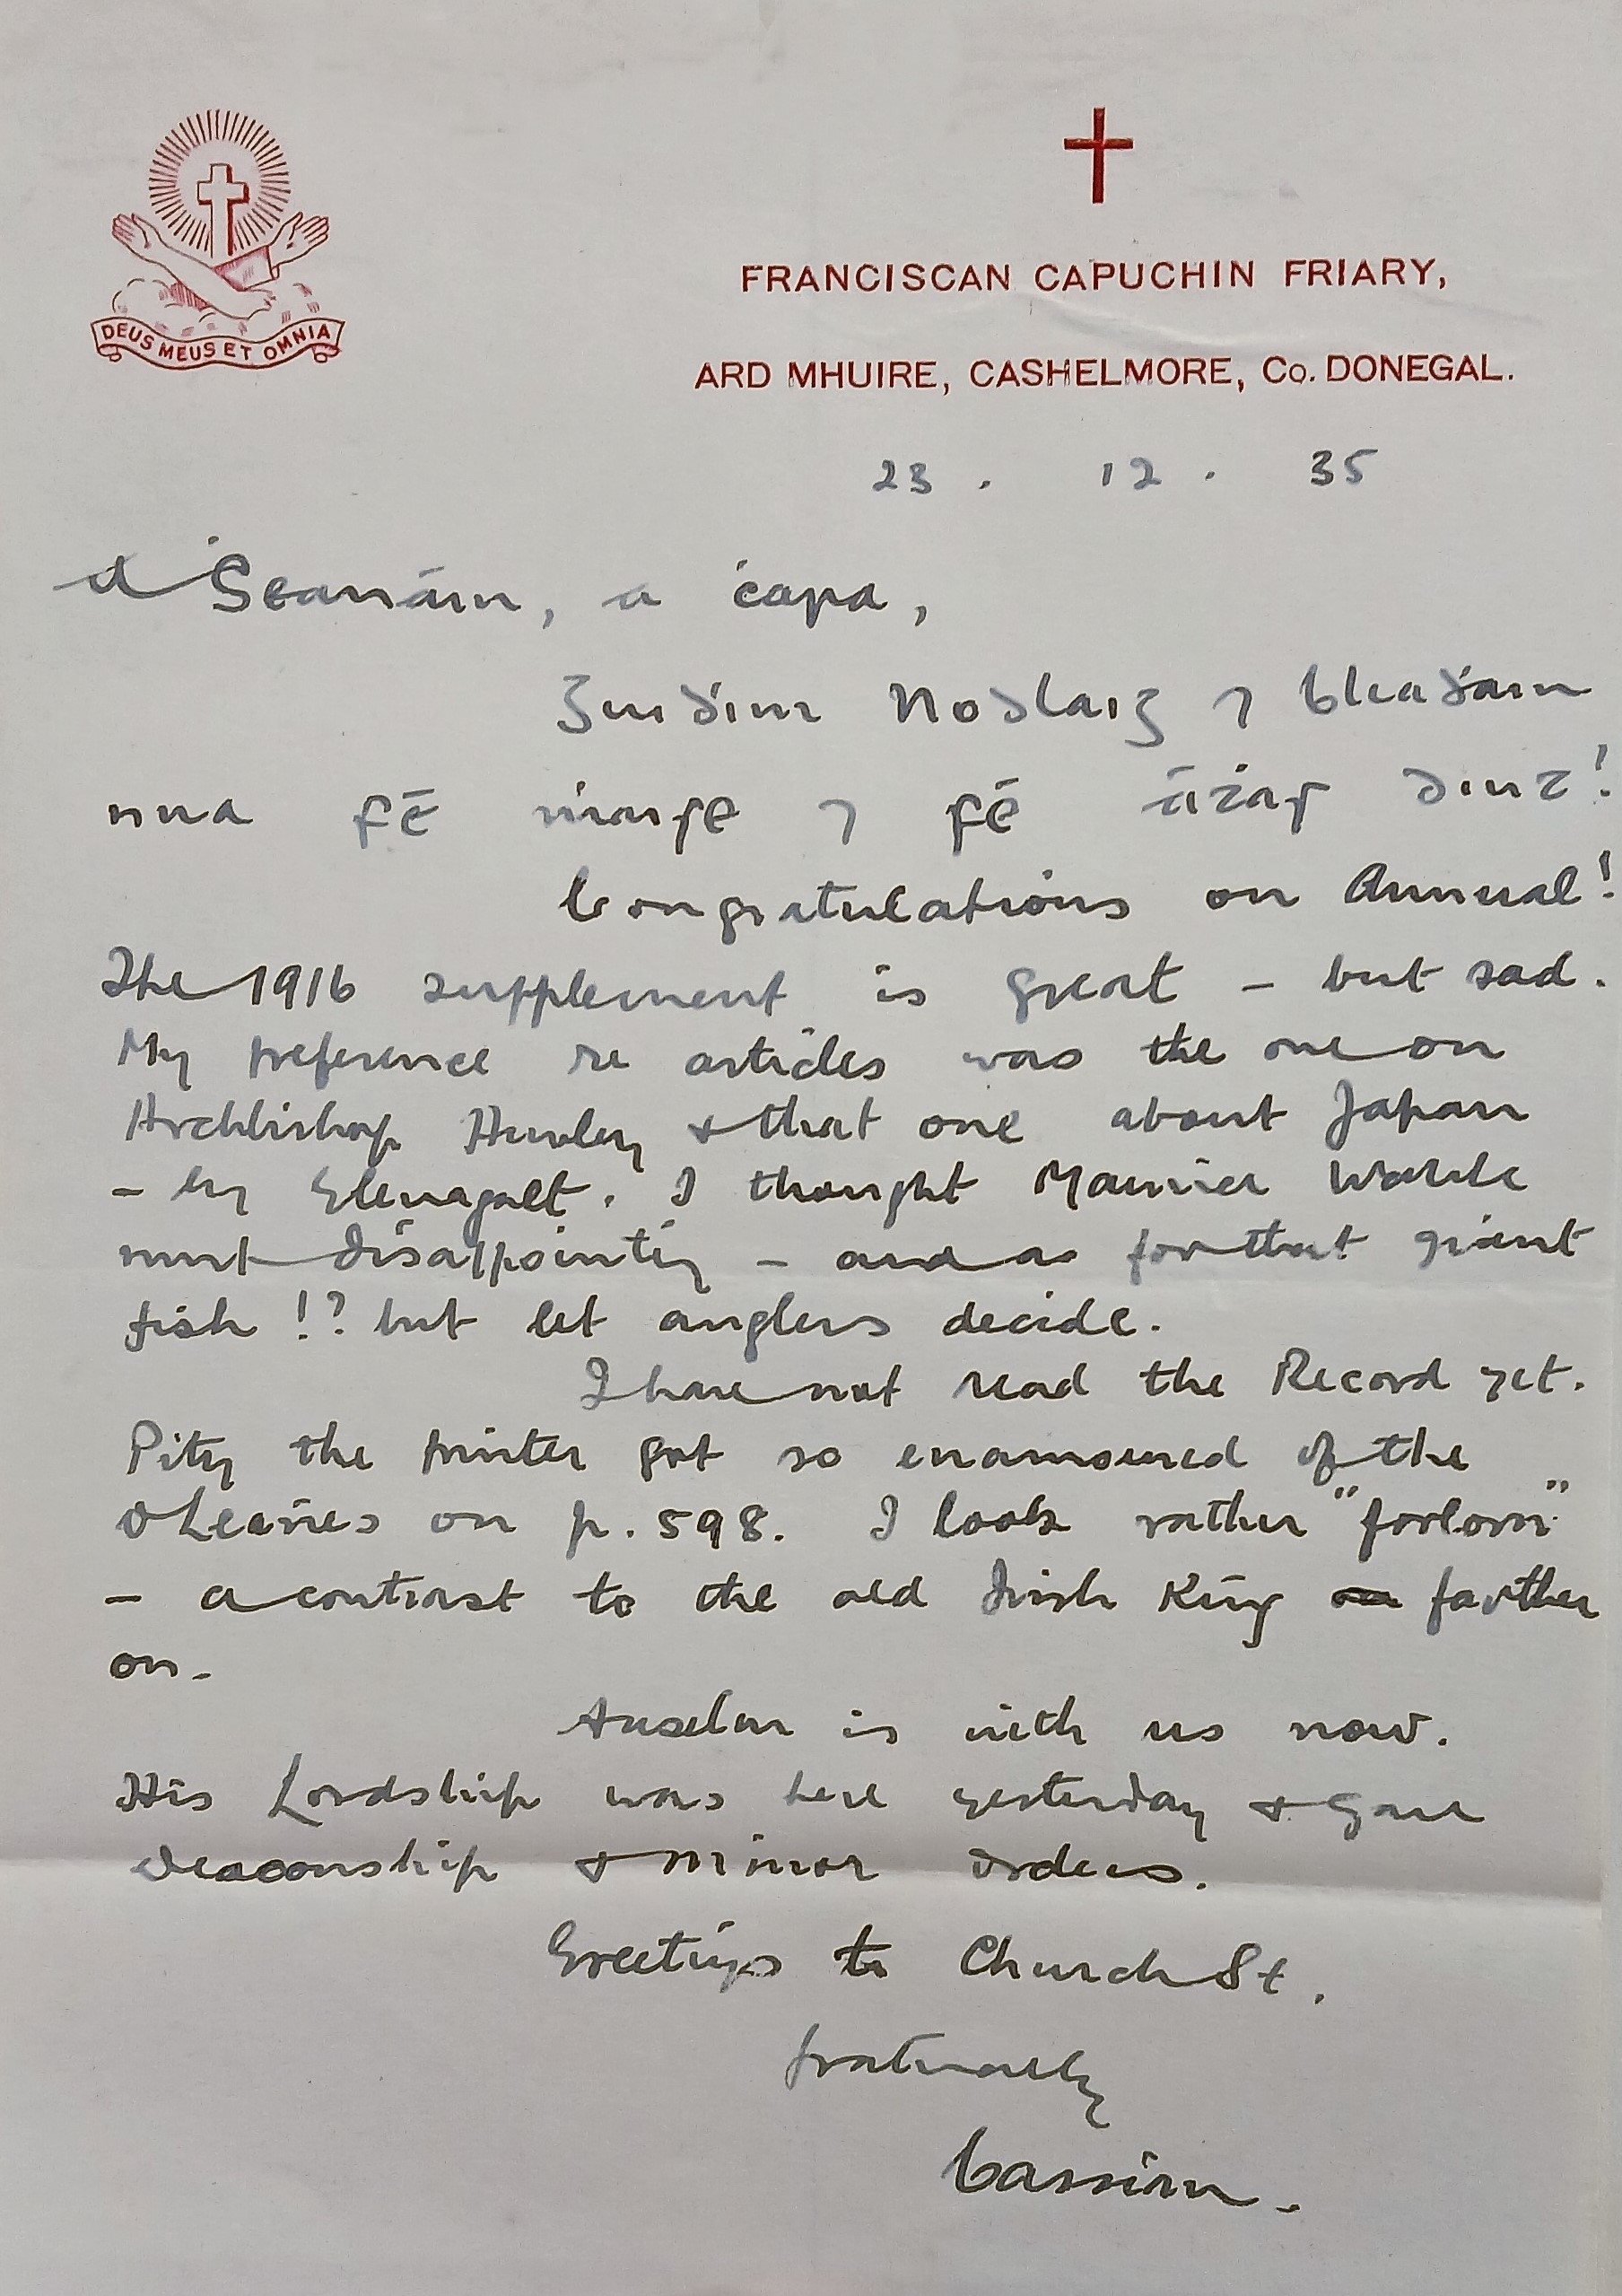 DEUS MEUS ET OMNIA
FRANCISCAN CAPUCHIN FRIARY,
ARD MHUIRE, CASHELMORE, Co. DONEGAL.
23 . 12 . 35
A Ṡeanáin, a ċara,
Guiḋim Nodlaig ⁊ bliaḋain
nua fé ṁaise ⁊ fé áṫas duit!
Congratulations on Annual!
The 1916 supplement is great – but sad.
My preference re articles was the one on
Archbishop Hurley & that one about Japan
– by Glenagalt. I thought Maurice Walsh
most disappointing – and as for that giant
fish !? but let anglers decide.
I have not read the Record yet.
Pity the printer got so enamoured of the
O'Learies on p. 598. I look rather "forlorn"
– a contrast to the old Irish King farther
on.
Anselm is with us now.
His Lordship was here yesterday & gave
deaconship & minor orders.
Greetings to Church St.
fraternally
Cassian.